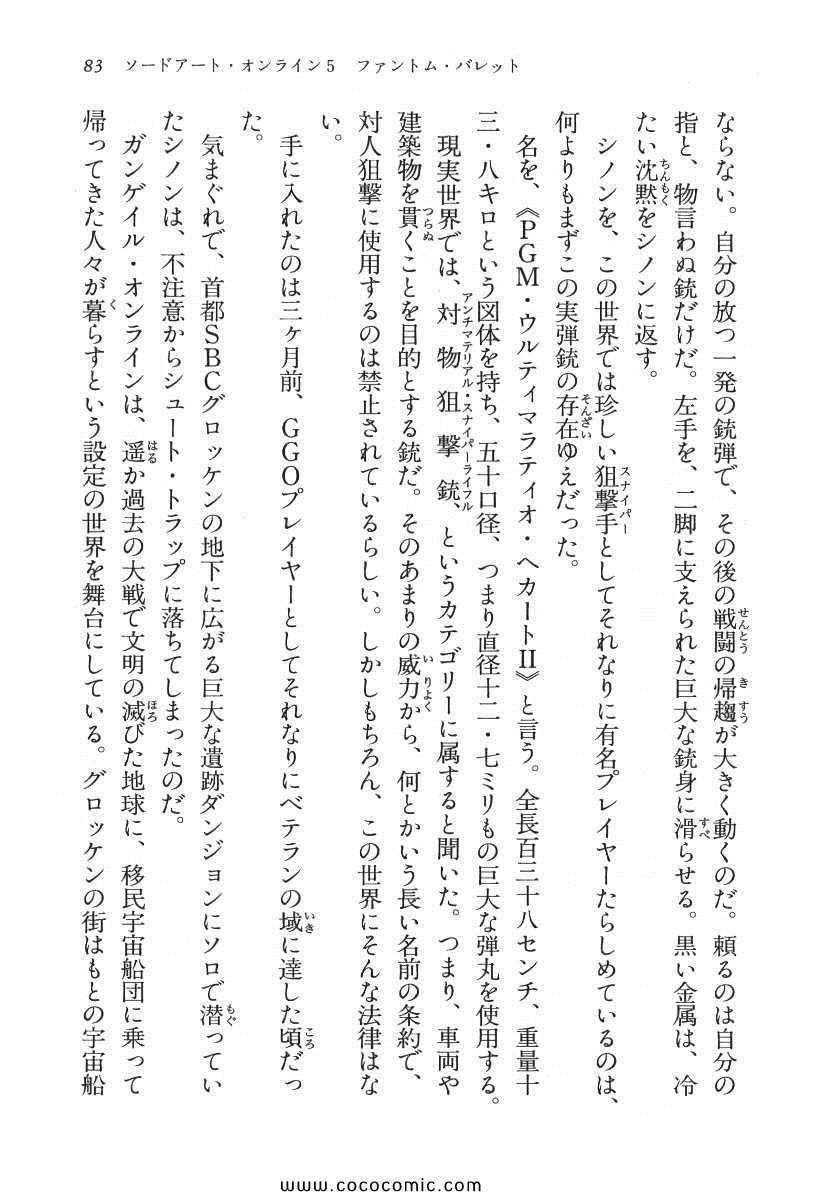 83　ソードアート・オンライン5　ファントム・バレット
ならない。自分の放つ一発の銃弾で、その後の戦闘の帰趨が大きく動くのだ。頼るのは自分の
指と、物言わぬ銃だけだ。左手を、二脚に支えられた巨大な銃身に滑らせる。黒い金属は、冷
たい沈黙をシノンに返す。
シノンを、この世界では珍しい狙撃手としてそれなりに有名プレイヤーたらしめているのは、
何よりもまずこの実弾銃の存在ゆえだった。
名を、《PGM・ウルティマラティオ・ヘカートII》と言う。全長百三十八センチ、重量十
三・八キロという図体を持ち、五十口径、つまり直径十二・七ミリもの巨大な弾丸を使用する。
現実世界では、対物狙撃銃、というカテゴリーに属すると聞いた。つまり、車両や
建築物を貫くことを目的とする銃だ。そのあまりの威力から、何とかいう長い名前の条約で、
対人狙撃に使用するのは禁止されているらしい。しかしもちろん、この世界にそんな法律はな
い。
手に入れたのは三ヶ月前、GGOプレイヤーとしてそれなりにベテランの域に達した頃だっ
た。
気まぐれで、首都SBCグロッケンの地下に広がる巨大な遺跡ダンジョンにソロで潜ってい
たシノンは、不注意からシュート・トラップに落ちてしまったのだ。
ガンゲイル・オンラインは、遥か過去の大戦で文明の滅びた地球に、移民宇宙船団に乗って
帰ってきた人々が暮らすという設定の世界を舞台にしている。グロッケンの街はもとの宇宙船
www.cococomic.com